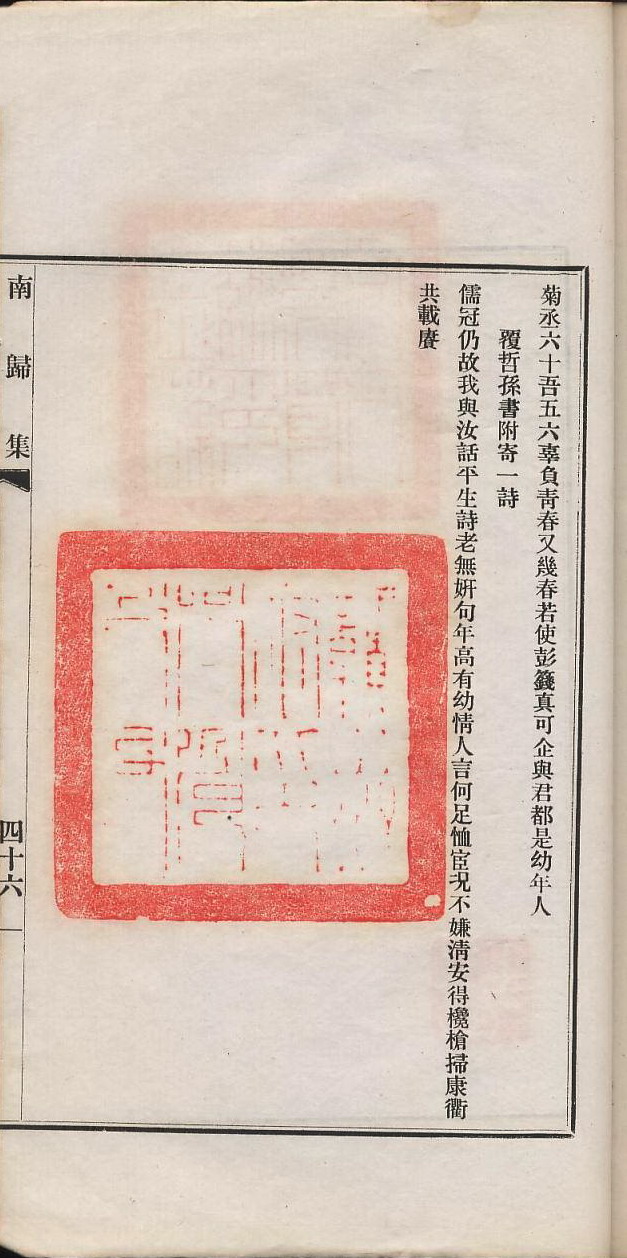 菊丞六十吾五六辜負靑春又幾春若使彭籛真可企與君都是幼年人
覆哲孫書附寄一詩
儒冠仍故我與汝話平生詩老無姸句年高有幼情人言何足恤宦況不嫌淸安得欃槍掃康衢
共載賡
南歸集
四十六